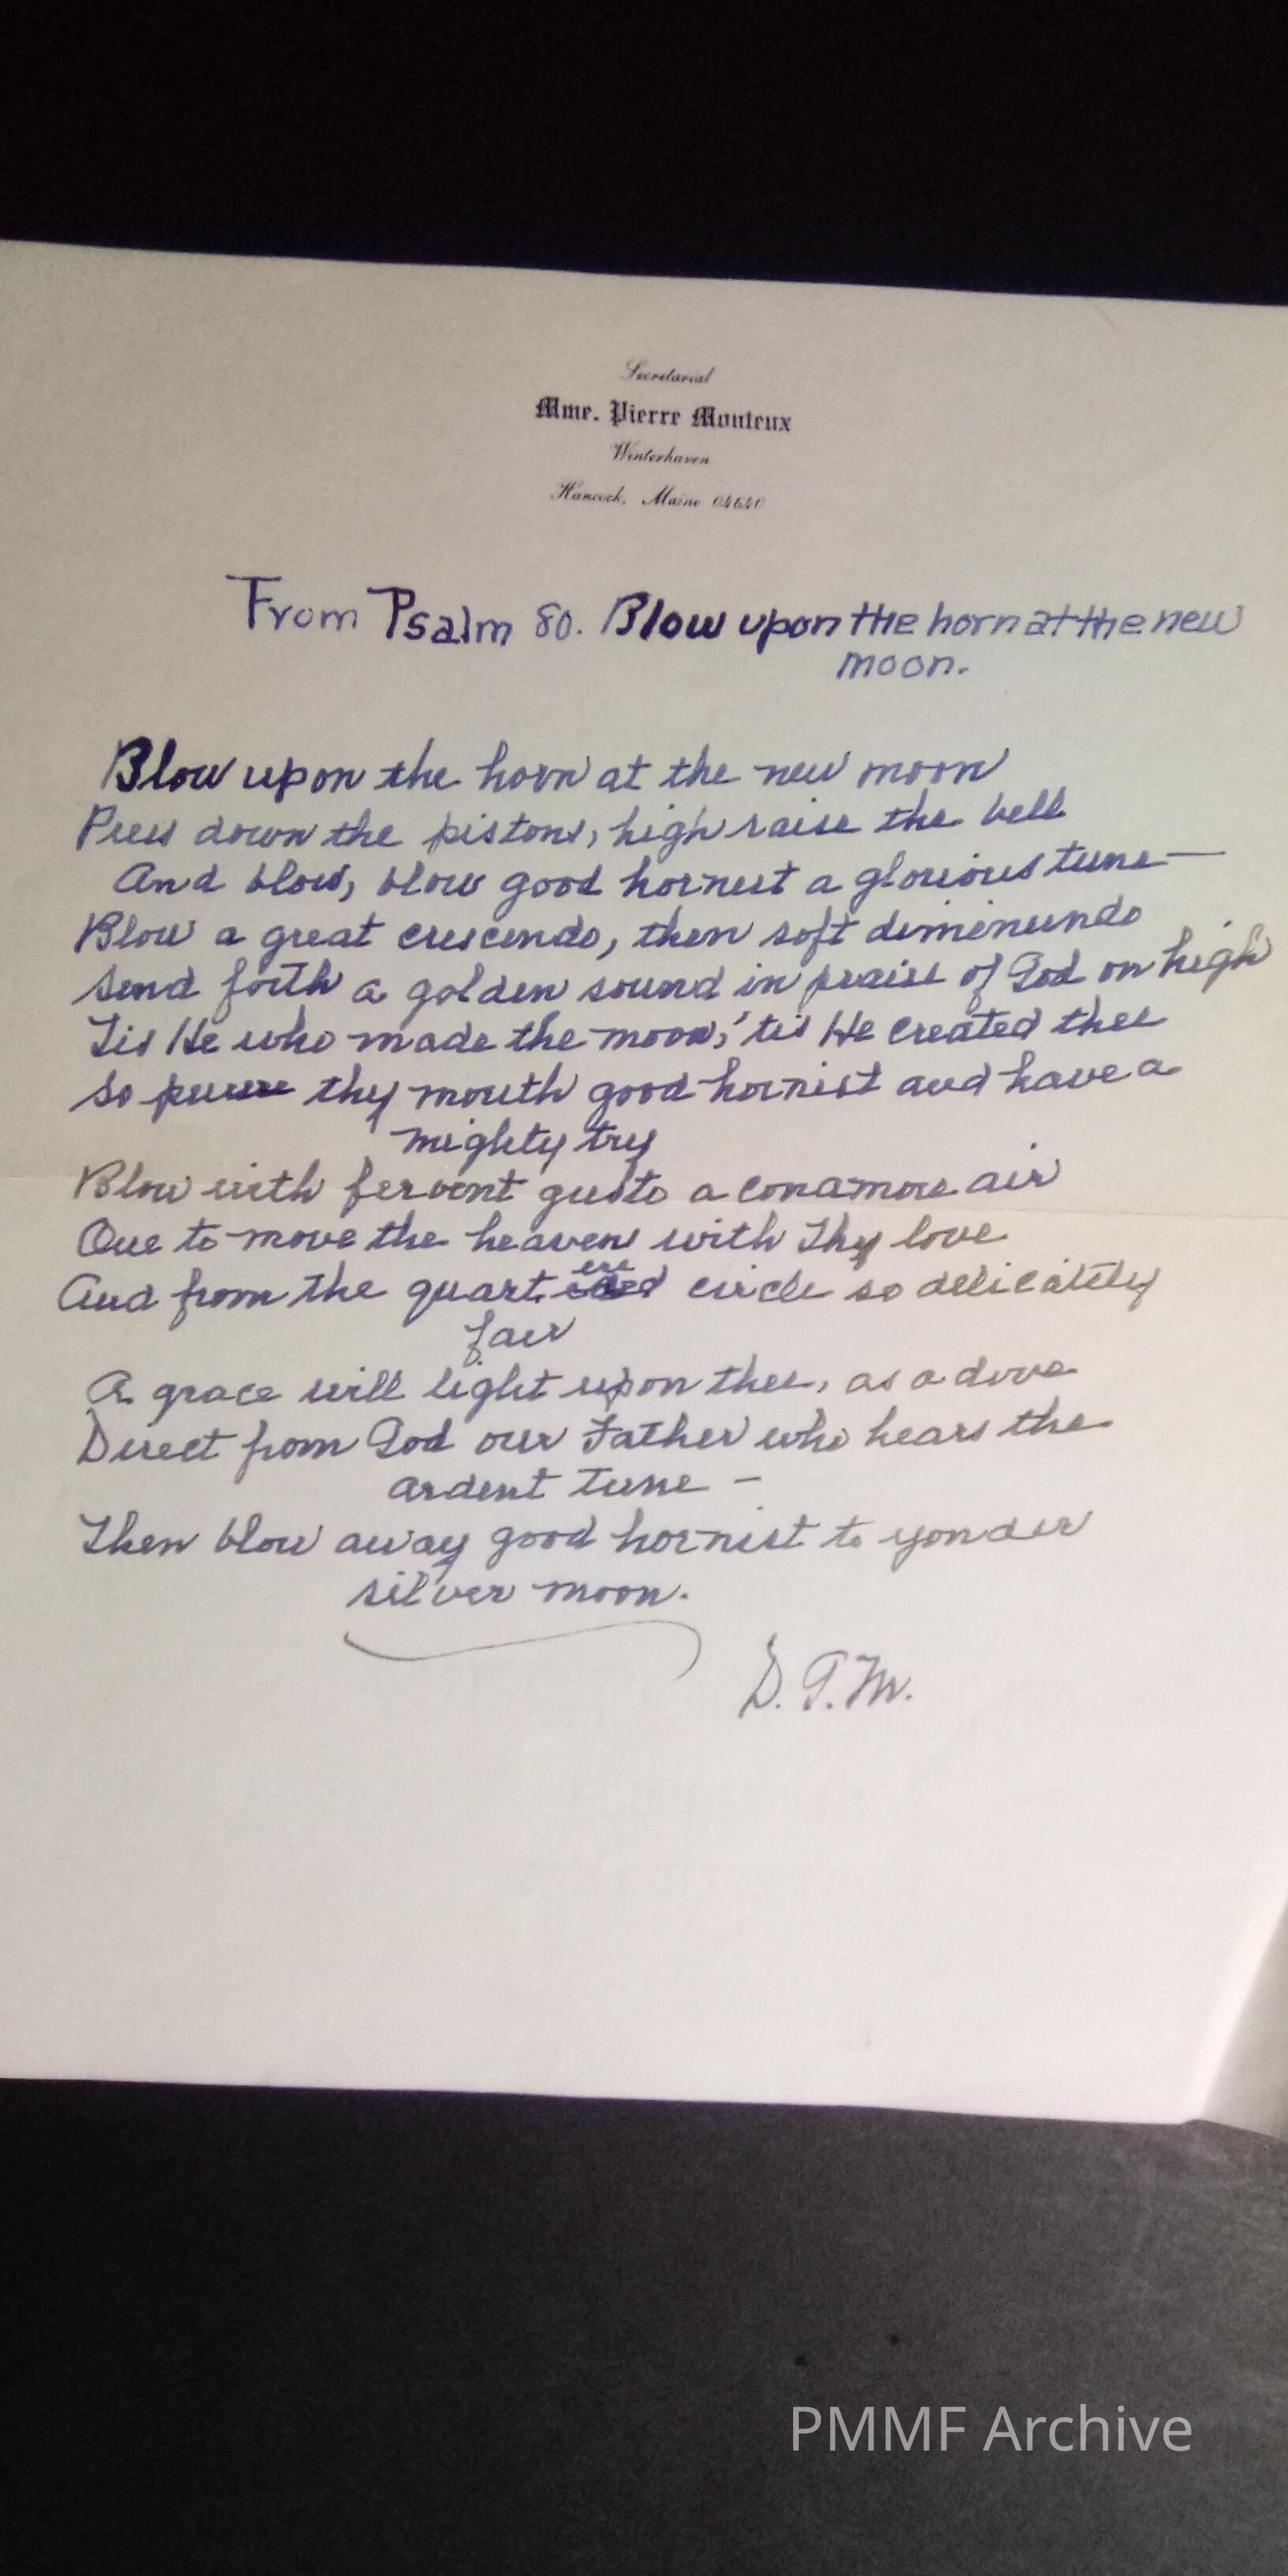 Secretarial
Mme. Pierre Monteux
Winterhaven
Hancock, Maine 04640
From Psalm 80. Blow upon the horn at the new
moon.
Blow upon the horn at the new moon
Press down the pistons, high raise the bell
And blow, blow good hornest a glorious tune—
Blow a great crescendo, then soft diminuendo
Send forth a golden sound in praise of God on high
Tis He who made the moon, 'tis He created thee
So purse thy mouth good hornist and have a
mighty try
Blow with fervent gusto a conamore air
One to move the heaven with Thy love
And from the quartered circle so delicately
fair
A grace will light upon thee, as a dove
Direct from God our Father who hears the
ardent tune —
Then blow away good hornist to yonder
silver moon.
D.G.M.
PMMF Archive